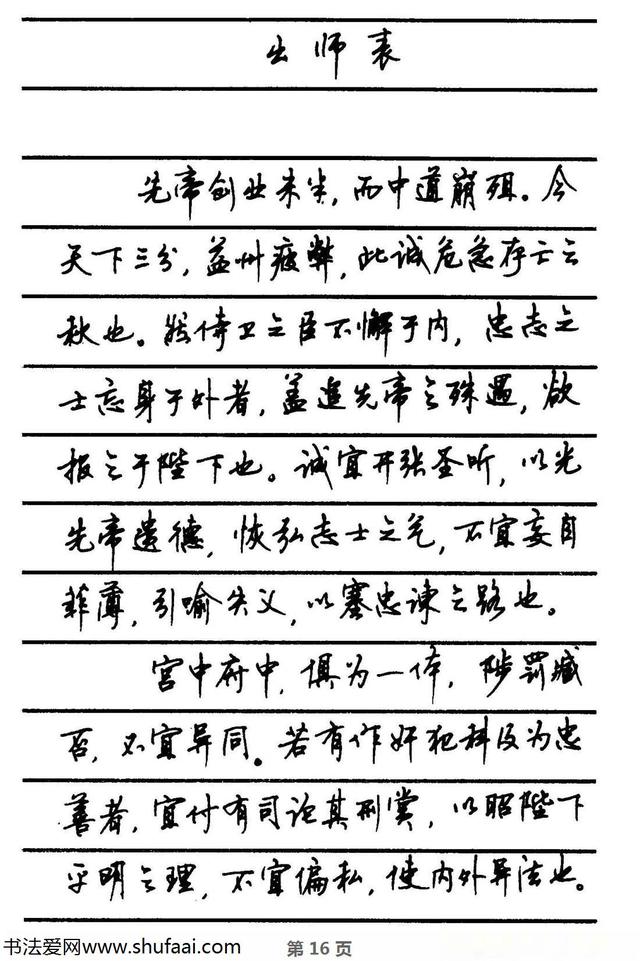 出师表
先帝创业未半，而中道崩殂。今
天下三分，益州疲弊，此诚危急存亡之
秋也。然侍卫之臣不懈于内，忠志之
士忘身于外者，盖追先帝之殊遇，欲
报之于陛下也。诚宜开张圣听，以光
先帝遗德，恢弘志士之气，不宜妄自
菲薄，引喻失义，以塞忠谏之路也。
宫中府中，俱为一体，陟罚臧
否，不宜异同。若有作奸犯科及为忠
善者，宜付有司论其刑赏，以昭陛下
平明之理，不宜偏私，使内外异法也。
书法爱网www.shufaai.com
第 16 页